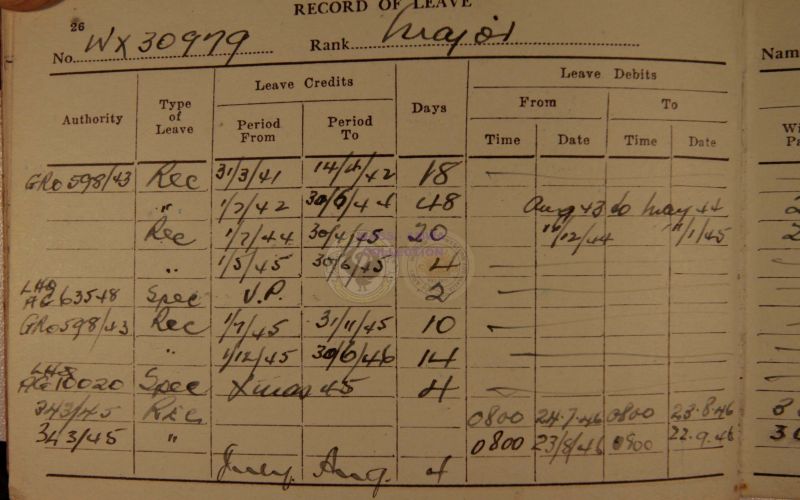 RECORD OF LEAVE
26
No. WX 30979 Rank Major
Authority Type of Leave Leave Credits Days Leave Debits
Period From Period To From To
Time Date Time Date
GRO 598/43 Rec 31/3/41 14/4/42 18 —
" 1/7/42 30/6/44 48 Aug 43 to May 44
Rec 1/7/44 30/4/45 20 11/12/44 11/1/45
" 1/5/45 30/6/45 4 —
LHQ AG 63548 Spec V.P. 2 —
GRO 598/43 Rec 1/7/45 31/11/45 10 —
" 1/12/45 30/6/46 14 —
LHQ AG 10020 Spec Xmas 45 4 —
343/45 Rec 0800 24.7.46 0800 23.8.46
343/45 " 0800 23/8/46 0900 22.9.46
July. Aug. 4
Nam
COLLECTION